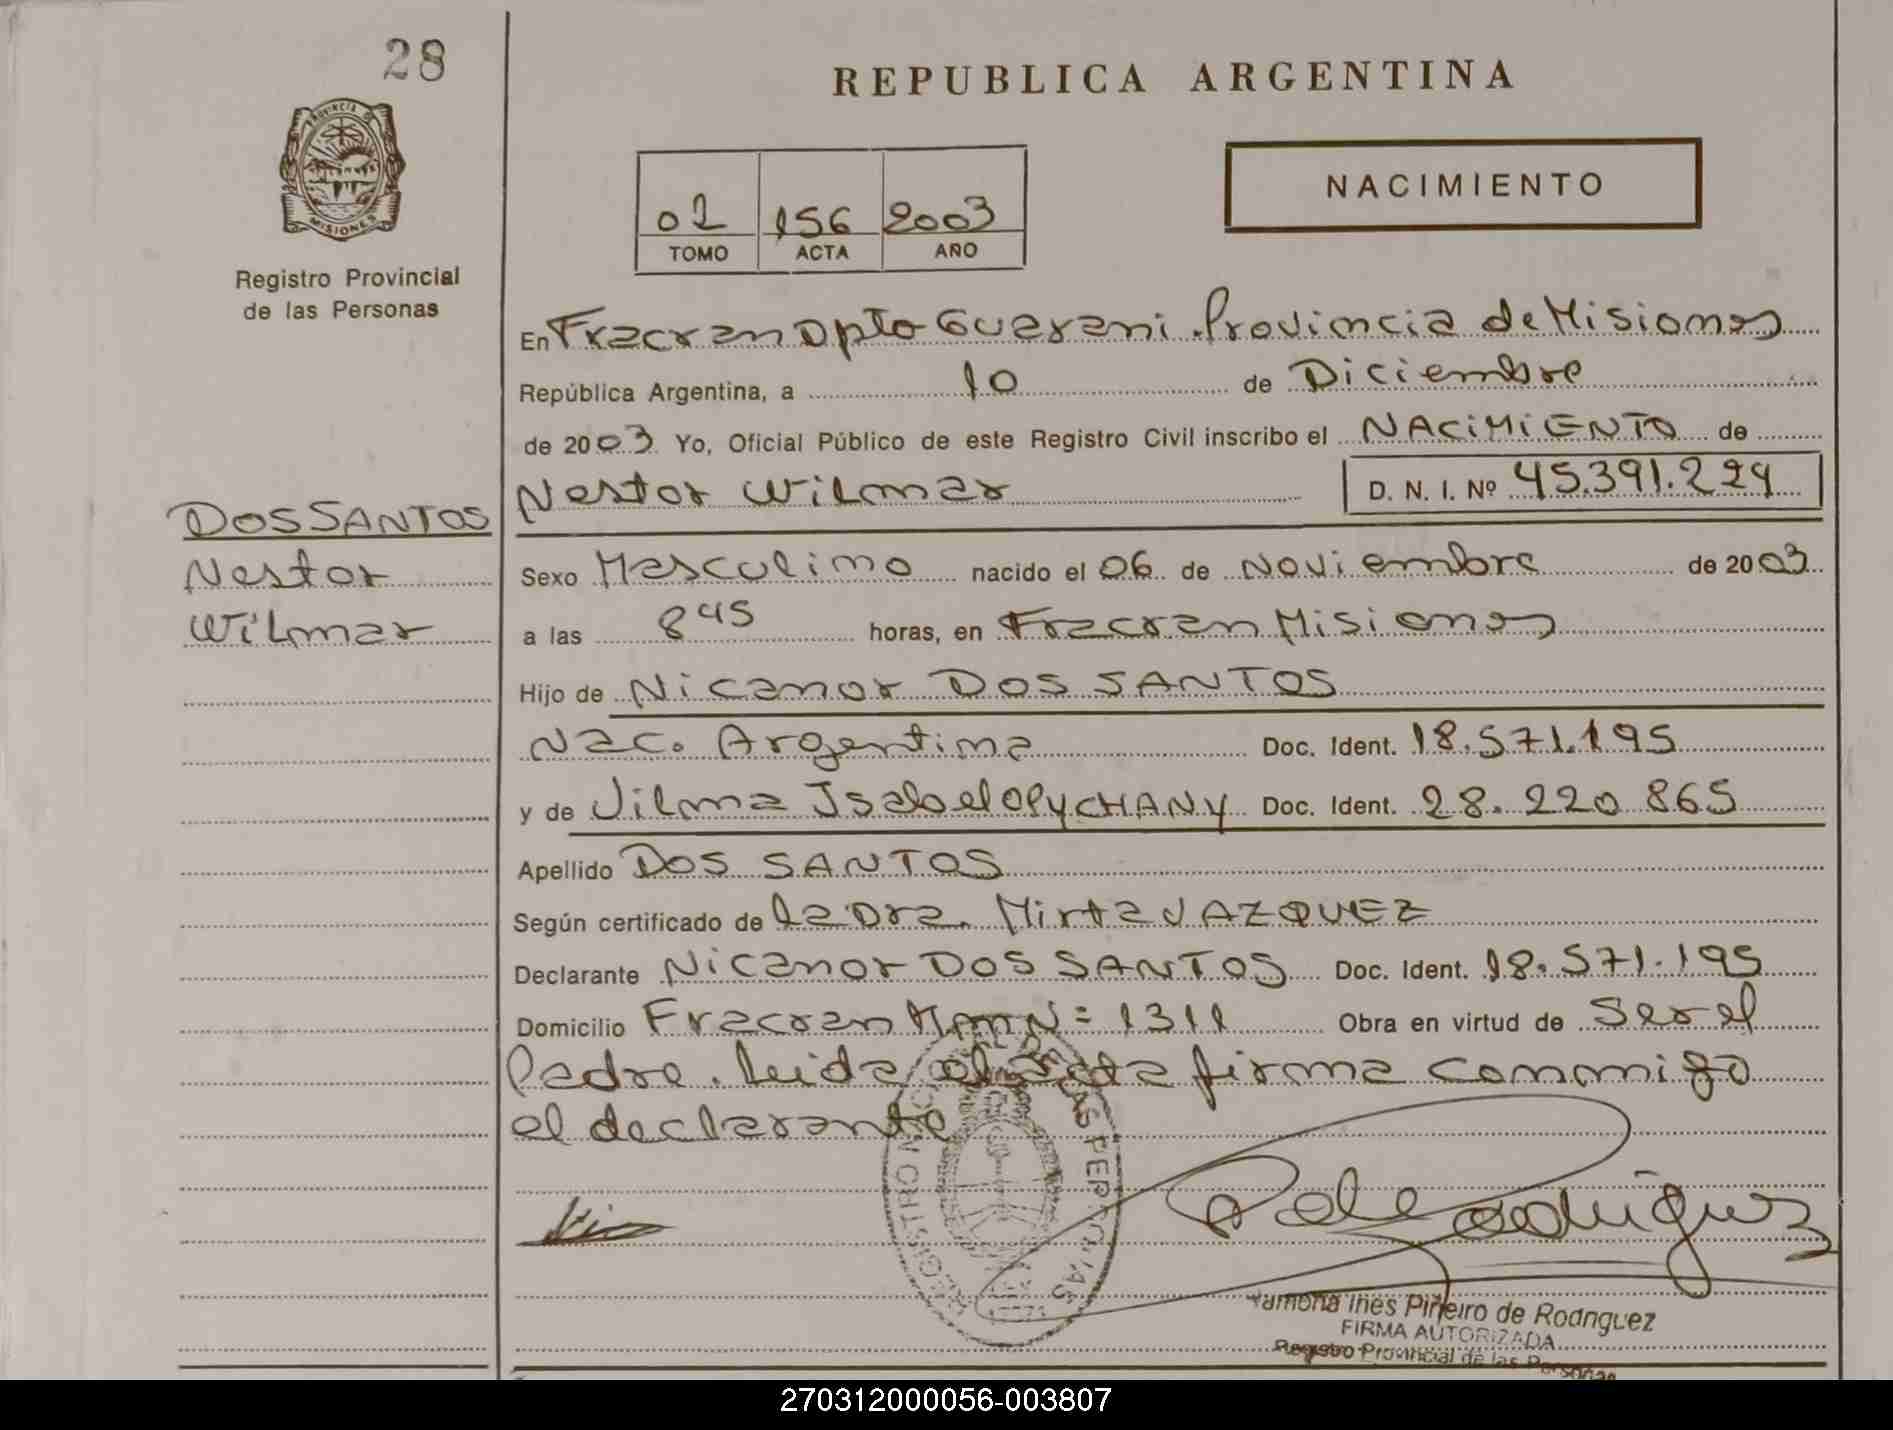 28
REPUBLICA ARGENTINA
PROVINCIA DE
MISIONES
Registro Provincial
de las Personas
02 156 2003
TOMO ACTA AÑO
NACIMIENTO
En Fracran Dpto Guarani. Provincia de Misiones
República Argentina, a 10 de Diciembre
de 2003 Yo, Oficial Público de este Registro Civil inscribo el NACIMIENTO de
Nestor Wilmar D. N. I. Nº 45.391.224
DOS SANTOS
Nestor
Wilmar
Sexo Masculino nacido el 06 de Noviembre de 2003
a las 8 45 horas, en Fracran Misiones
Hijo de Nicanor DOS SANTOS
Nac. Argentina Doc. Ident. 18.571.195
y de Vilma Isabel OLYCHANY Doc. Ident. 28.220 865
Apellido DOS SANTOS
Según certificado de la Dra. Mirta VAZQUEZ
Declarante Nicanor DOS SANTOS Doc. Ident. 18.571.195
Domicilio Fracran N= 1311 Obra en virtud de Ser el
Padre. Leida el Acta firma conmigo
el declarante
Ramona Inés Piñeiro de Rodriguez
FIRMA AUTORIZADA
Registro Provincial de las Personas
270312000056-003807